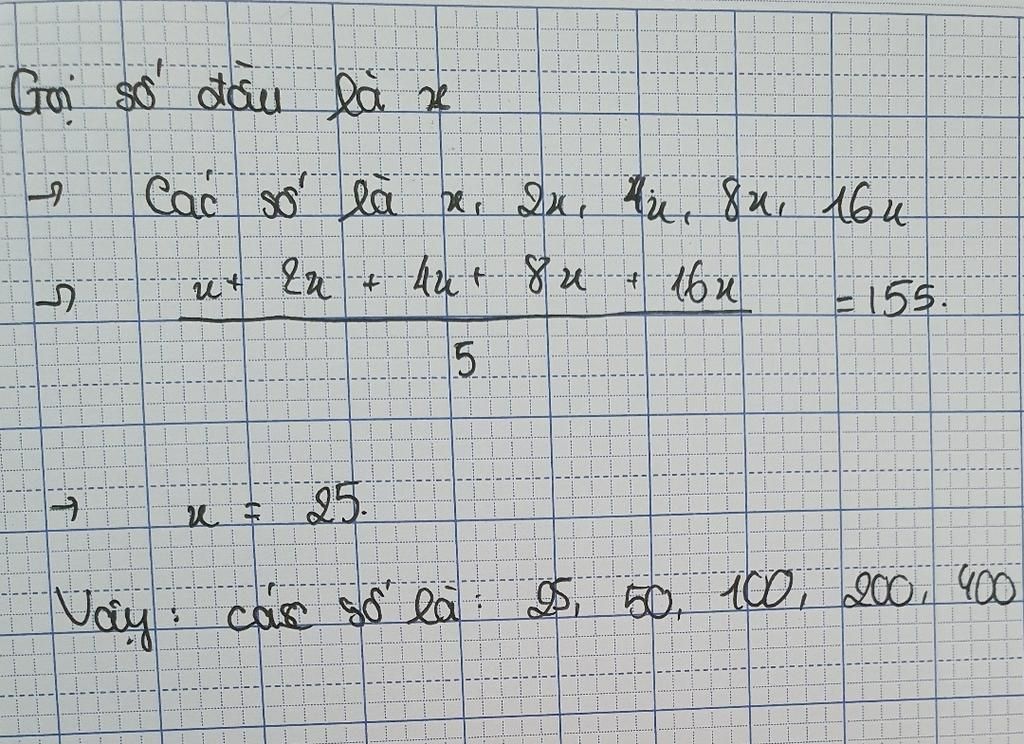 Gọi số đầu là x
→ Các số là x, 2x, 4x, 8x, 16x
→ x + 2x + 4x + 8x + 16x = 155.
5
→ x = 25.
Vậy: các số là: 25, 50, 100, 200, 400